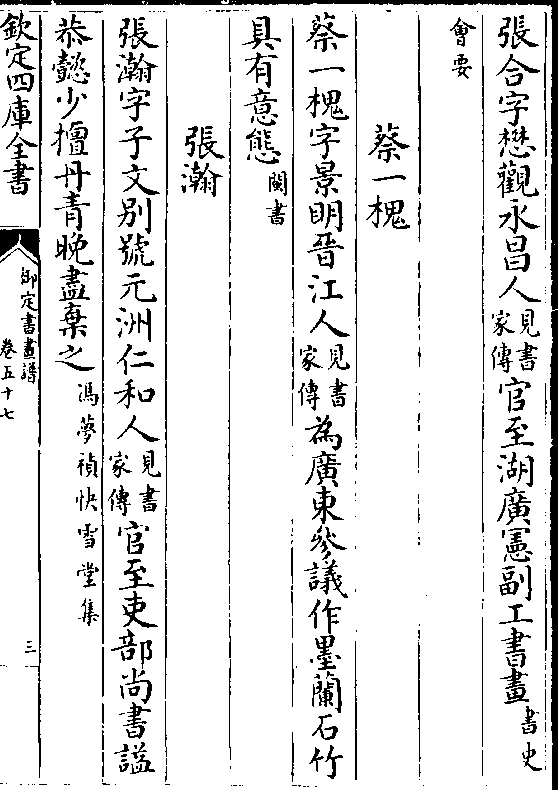 張合字懋觀永昌人見書家傳官至湖廣憲副工書畫書史
會要
蔡一槐
蔡一槐字景明晉江人見書家傳為廣東參議作墨蘭石竹
具有意態閩書
張瀚
張瀚字子文別號元洲仁和人見書家傳官至吏部尚書諡
恭懿少擅丹青晚盡棄之馮夢禎快雪堂集
欽定四庫全書
御定書畫譜
卷五十七
三